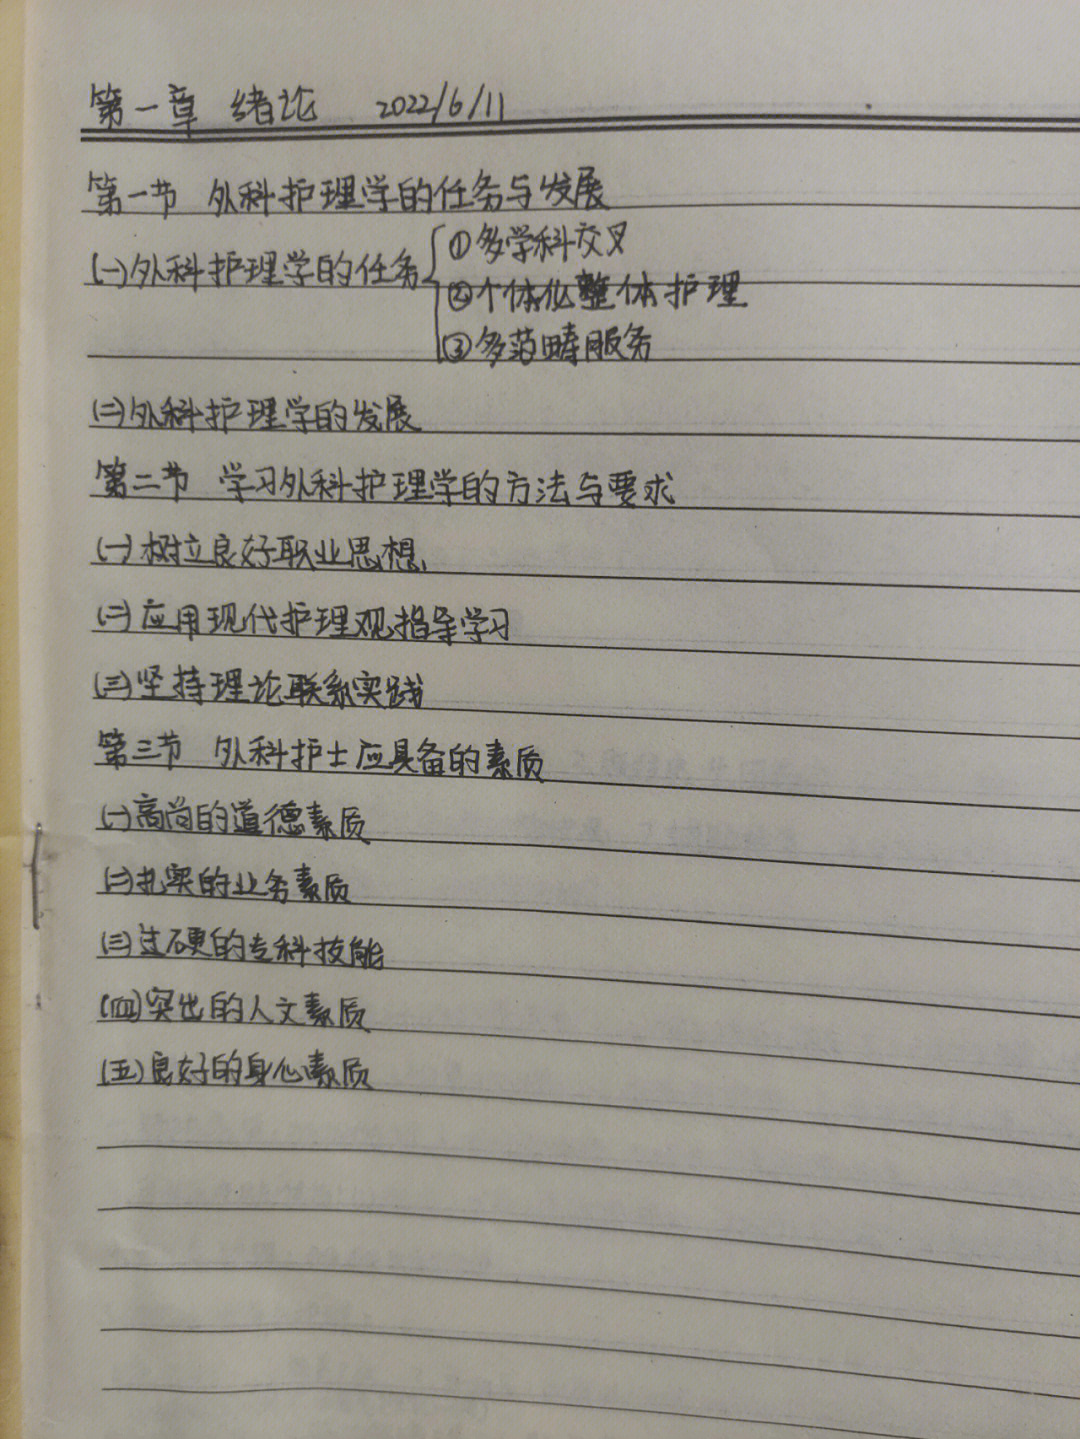 第一章 绪论 2022/6/11
第一节 外科护理学的任务与发展
(一)外科护理学的任务
①多学科交叉
②个体化整体护理
③多范畴服务
(二)外科护理学的发展
第二节 学习外科护理学的方法与要求
(一)树立良好职业思想
(二)应用现代护理观指导学习
(三)坚持理论联系实践
第三节 外科护士应具备的素质
(一)高尚的道德素质
(二)扎实的业务素质
(三)过硬的专科技能
(四)突出的人文素质
(五)良好的身心素质